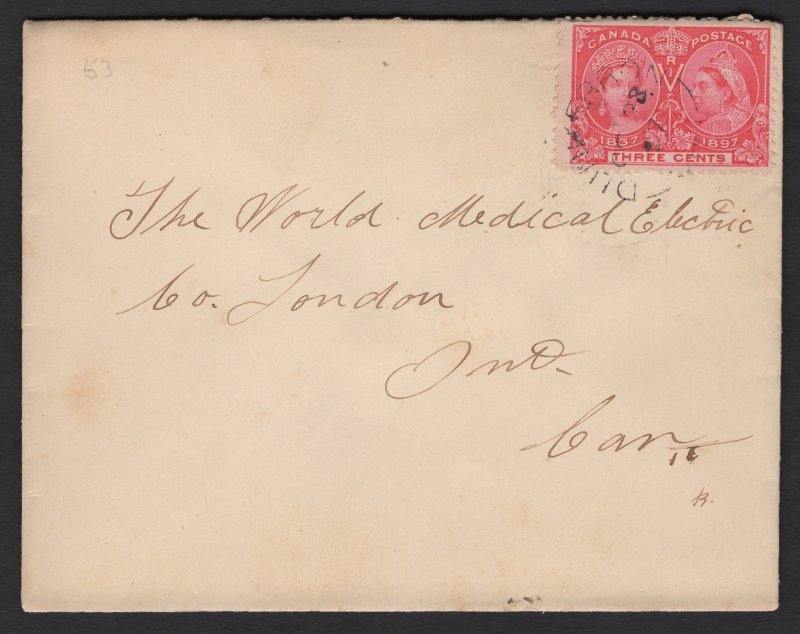 53
CANADA POSTAGE
V R
1837 1897
THREE CENTS
The World Medical Electric
Co. London
Ont.
Can
B.